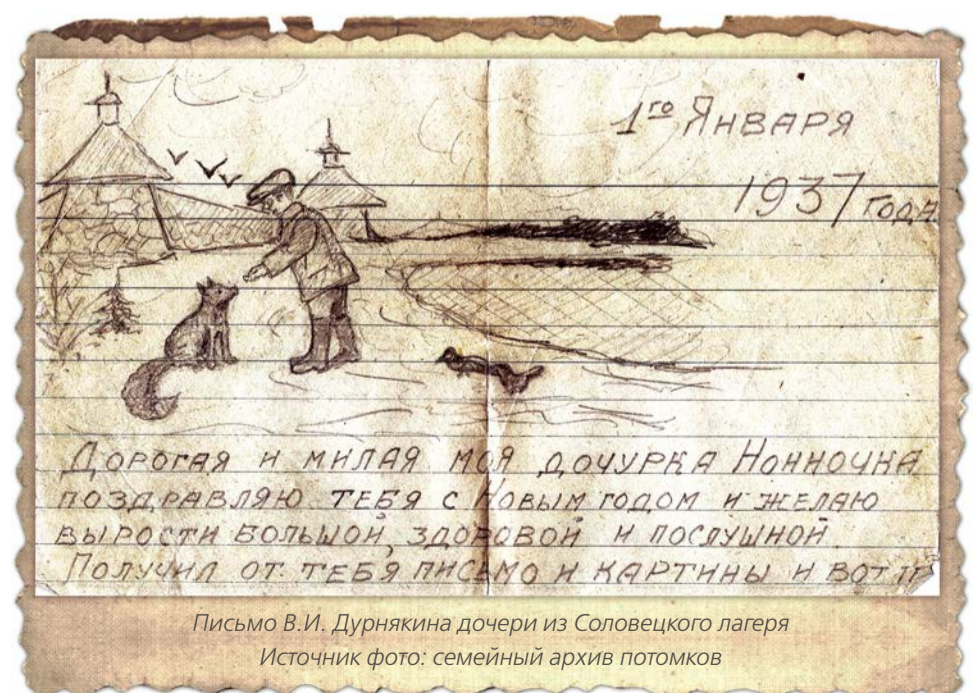 1го Января
1937 года
Дорогая и милая моя дочурка Нонночка
поздравляю тебя с Новым годом и желаю
вырости большой, здоровой и послушной.
Получил от тебя письмо и картины и вот
Письмо В.И. Дурнякина дочери из Соловецкого лагеря
Источник фото: семейный архив потомков